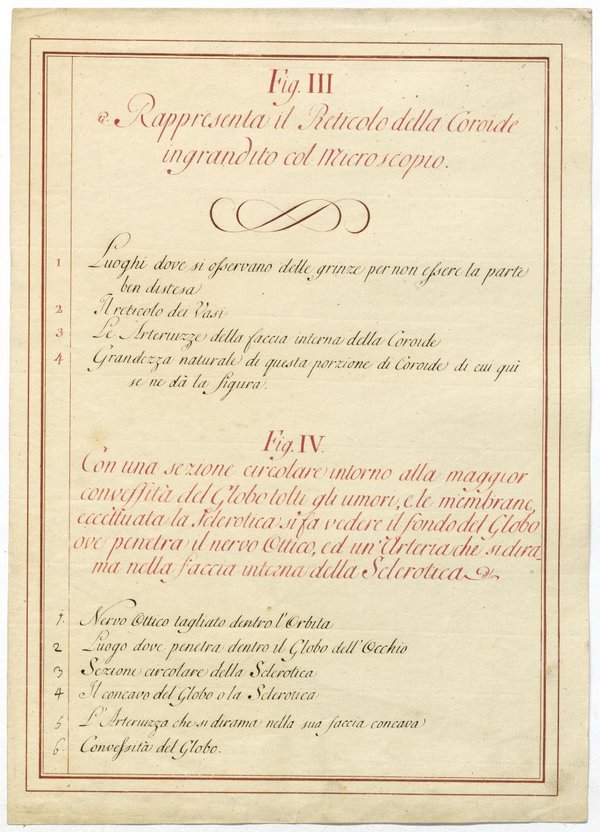 Fig. III
Rappresenta il Reticolo della Coroide
ingrandito col Microscopio.
1 Luoghi dove si osservano delle grinze per non essere la parte
ben distesa
2 Il reticolo dei Vasi
3 Le Arteriuzze della faccia interna della Coroide
4 Grandezza naturale di questa porzione di Coroide di cui qui
se ne dà la figura.
Fig. IV.
Con una sezione circolare intorno alla maggior
convessità del Globo tolti gli umori, e le membrane,
eccettuata la Sclerotica si fa vedere il fondo del Globo
ove penetra il nervo Ottico, ed un'Arteria che si dira,
ma nella faccia interna della Sclerotica
1. Nervo Ottico tagliato dentro l'Orbita
2 Luogo dove penetra dentro il Globo dell'Occhio
3 Sezione circolare della Sclerotica
4 Il concavo del Globo o la Sclerotica
5 L'Arteriuzza che si dirama nella sua faccia concava
6. Convessità del Globo.